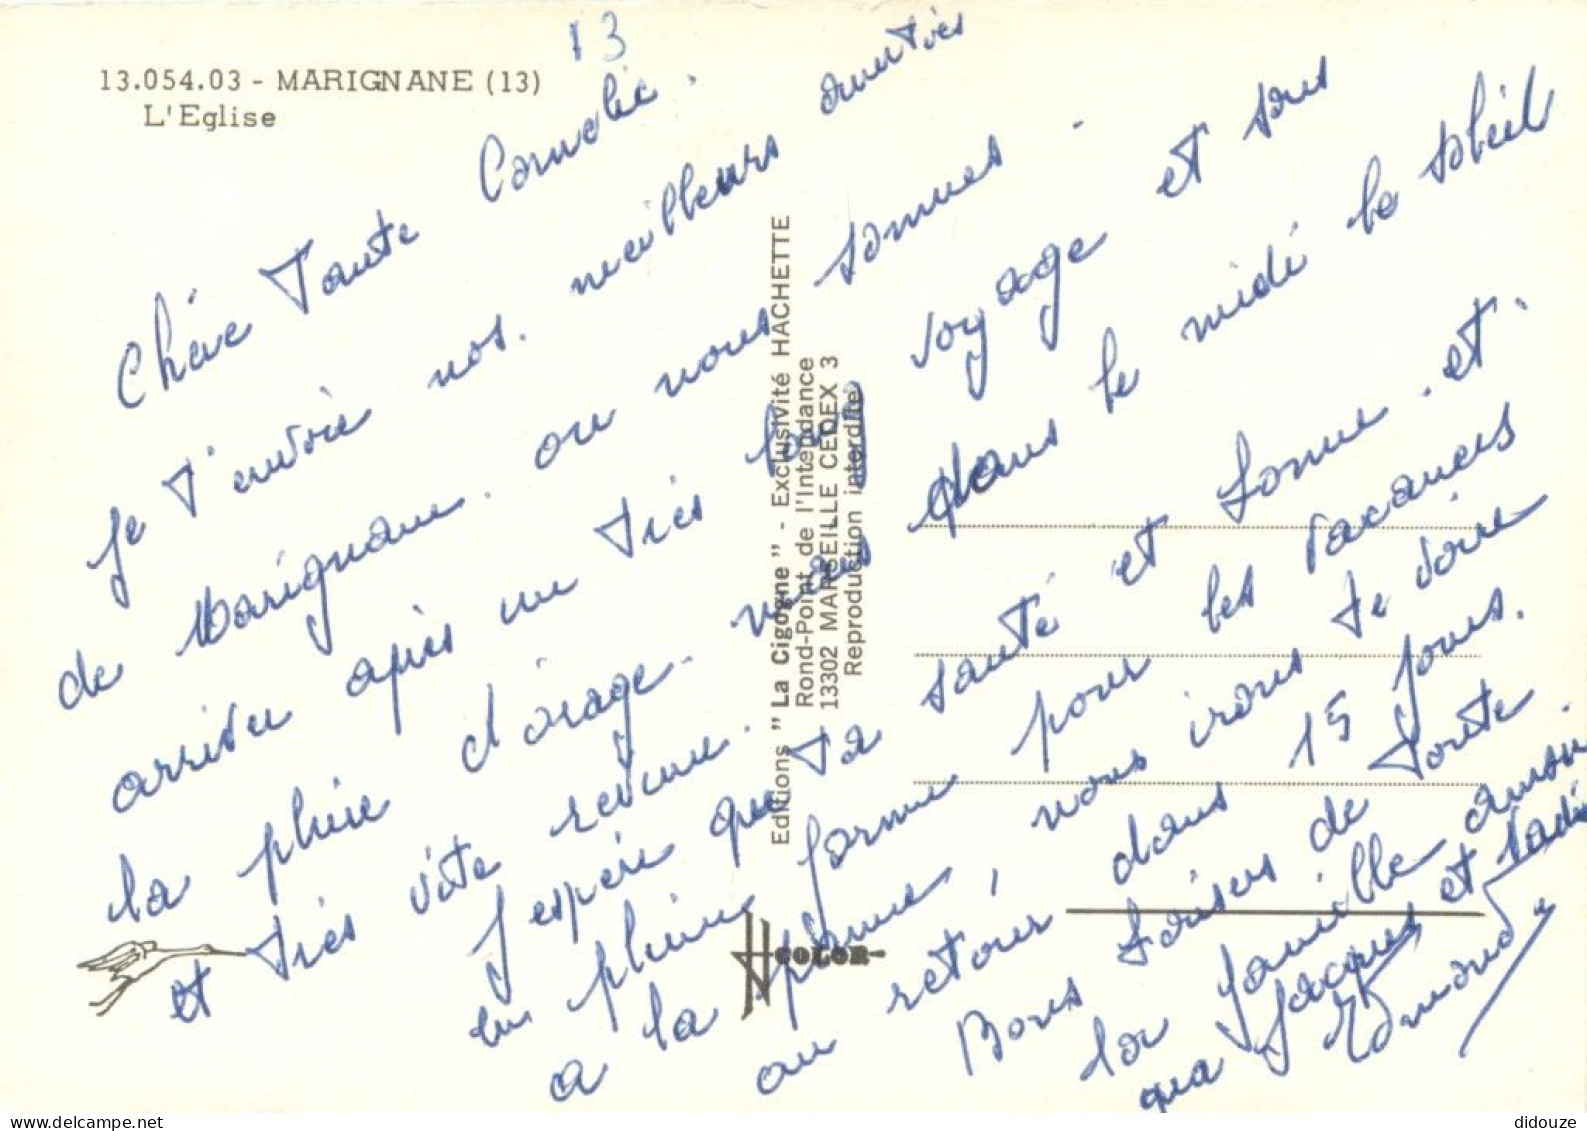 13
13.054.03 - MARIGNANE (13)
L'Eglise
Chère Tante Cornelie.
Je t'envoie nos meilleurs amitiés
de Marignane. ou nous sommes
arriver après un très long voyage et sous
la pluie d'orage. nous dans le midi le soleil
et très vite revenue.
J'espère que ta santé et bonne et
en pleine forme pour les vacances
a la nous irons te voire
au retour dans 15 jours.
Bons baisers de toute
la famille
qua Jacques et Nadi
Edmond
Editions "La Cigogne" - Exclusivité HACHETTE
Rond-Point de l'Intendance
13302 MARSEILLE CEDEX 3
Reproduction interdite
COLOR
didouze